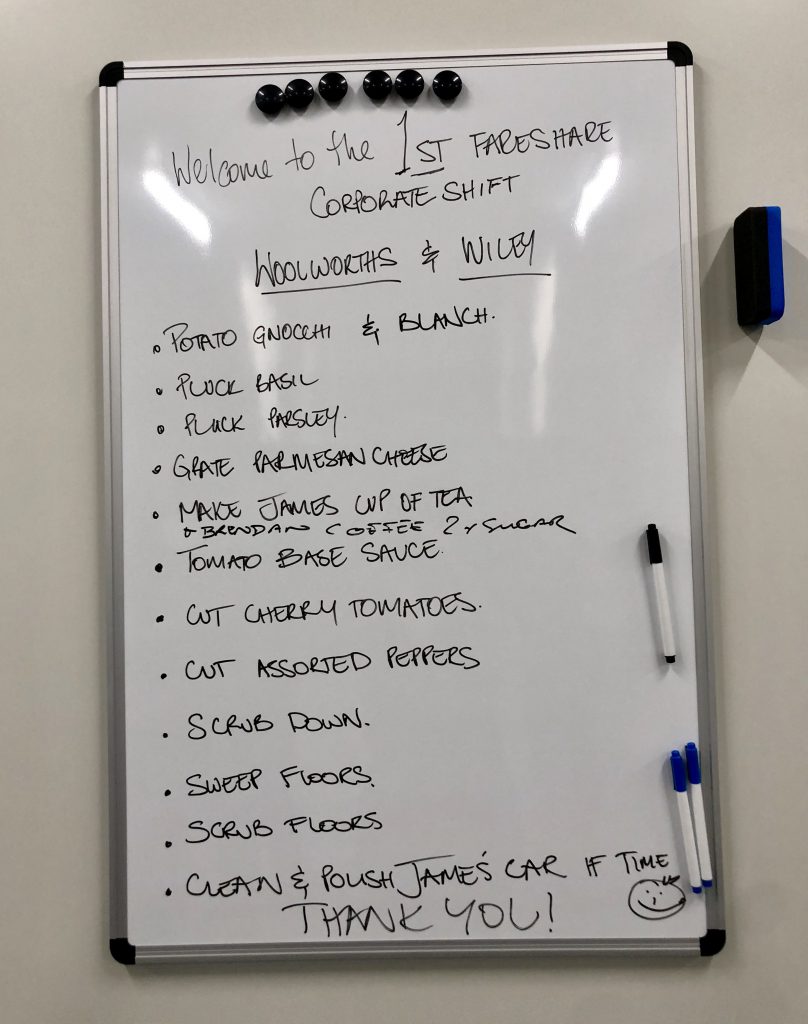 Welcome to the 1ST FARESHARE
CORPORATE SHIFT
WOOLWORTHS & WILEY
• POTATO GNOCCHI & BLANCH.
• PLUCK BASIL
• PLUCK PARSLEY.
• GRATE PARMESAN CHEESE
• MAKE JAMES CUP OF TEA
& BRENDAN COFFEE 2 x SUGAR
• TOMATO BASE SAUCE.
• CUT CHERRY TOMATOES.
• CUT ASSORTED PEPPERS
• SCRUB DOWN.
• SWEEP FLOORS.
• SCRUB FLOORS
• CLEAN & POLISH JAMES' CAR IF TIME
THANK YOU!